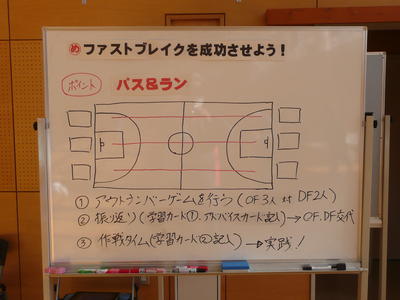 め ファストブレイクを成功させよう！
ポイント パス&ラン
① アウトナンバーゲームを行う(OF3人 対 DF2人)
② 振り返り(学習カート①、アドバイスカード記入)→OF.DF交代
③ 作戦タイム(学習カート②記入) → 実践！